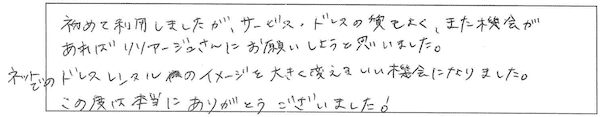 初めて利用しましたが、サービス・ドレスの質もよく、また機会が
あればリリアージュさんにお願いしようと思いました。
ネットでのドレスレンタルのイメージを大きく変えるいい機会になりました。
この度は本当にありがとうございました!